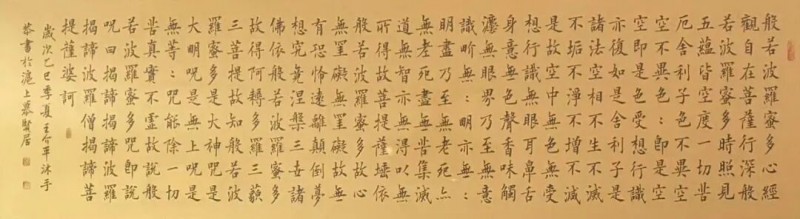 般若波羅蜜多心經
觀自在菩薩行深般
若波羅蜜多時照見
五蘊皆空度一切苦
厄舍利子色不異空
空不異色:即是空
空即是色受想行識
亦復如是舍利子是
諸法空相不生不滅
不垢不淨不增不減
是故空中無色無受
想行識無眼耳鼻舌
身意無色聲香味觸
灋無眼界乃至無意
識畍無:明亦無:
明盡乃至無老死亦
無老死盡無苦集滅
道無智亦無得以無
所得故菩提薩埵依
般若波羅蜜多故心
無罣礙無罣礙故無
有恐怖遠離顛倒夢
想究竟涅槃三世諸
佛依般若波羅蜜多
故得阿耨多羅三藐
三菩提故知般若波
羅蜜多是大神咒是
大明咒是無上咒是
無等:咒能除一切
苦真實不虛故說般
若波羅蜜多咒即說
咒曰揭諦揭諦波羅
揭諦波羅僧揭諦菩
提薩婆訶
歲次乙巳季夏王沐手
恭書於滬上慕賢居